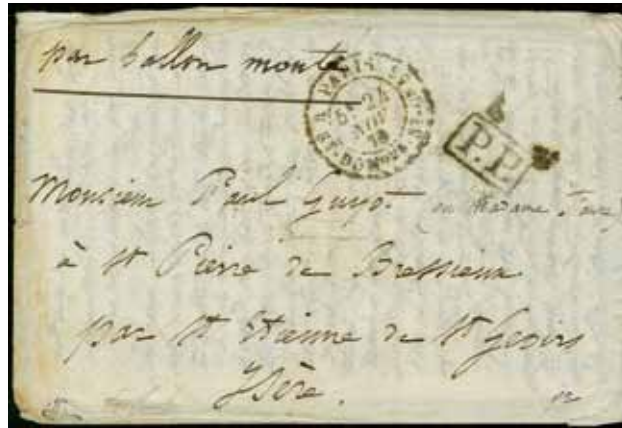 par ballon monté
PARIS
24
NOV
70
R. ST DOMque ST
P.P.
Monsieur Paul Guyot (ou Madame
à St Pierre de Bressieux
par St Etienne de St Geoirs
Isère.